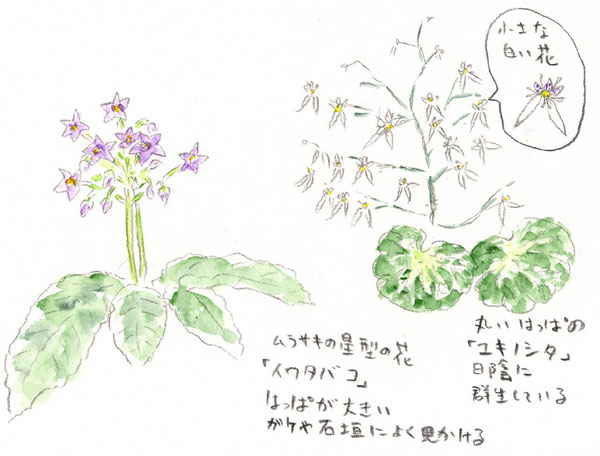 小さな
白い花
ムラサキの星型の花
「イワタバコ」
はっぱが大きい
ガケや石垣によく見かける
丸いはっぱの
「ユキノシタ」
日陰に
群生している